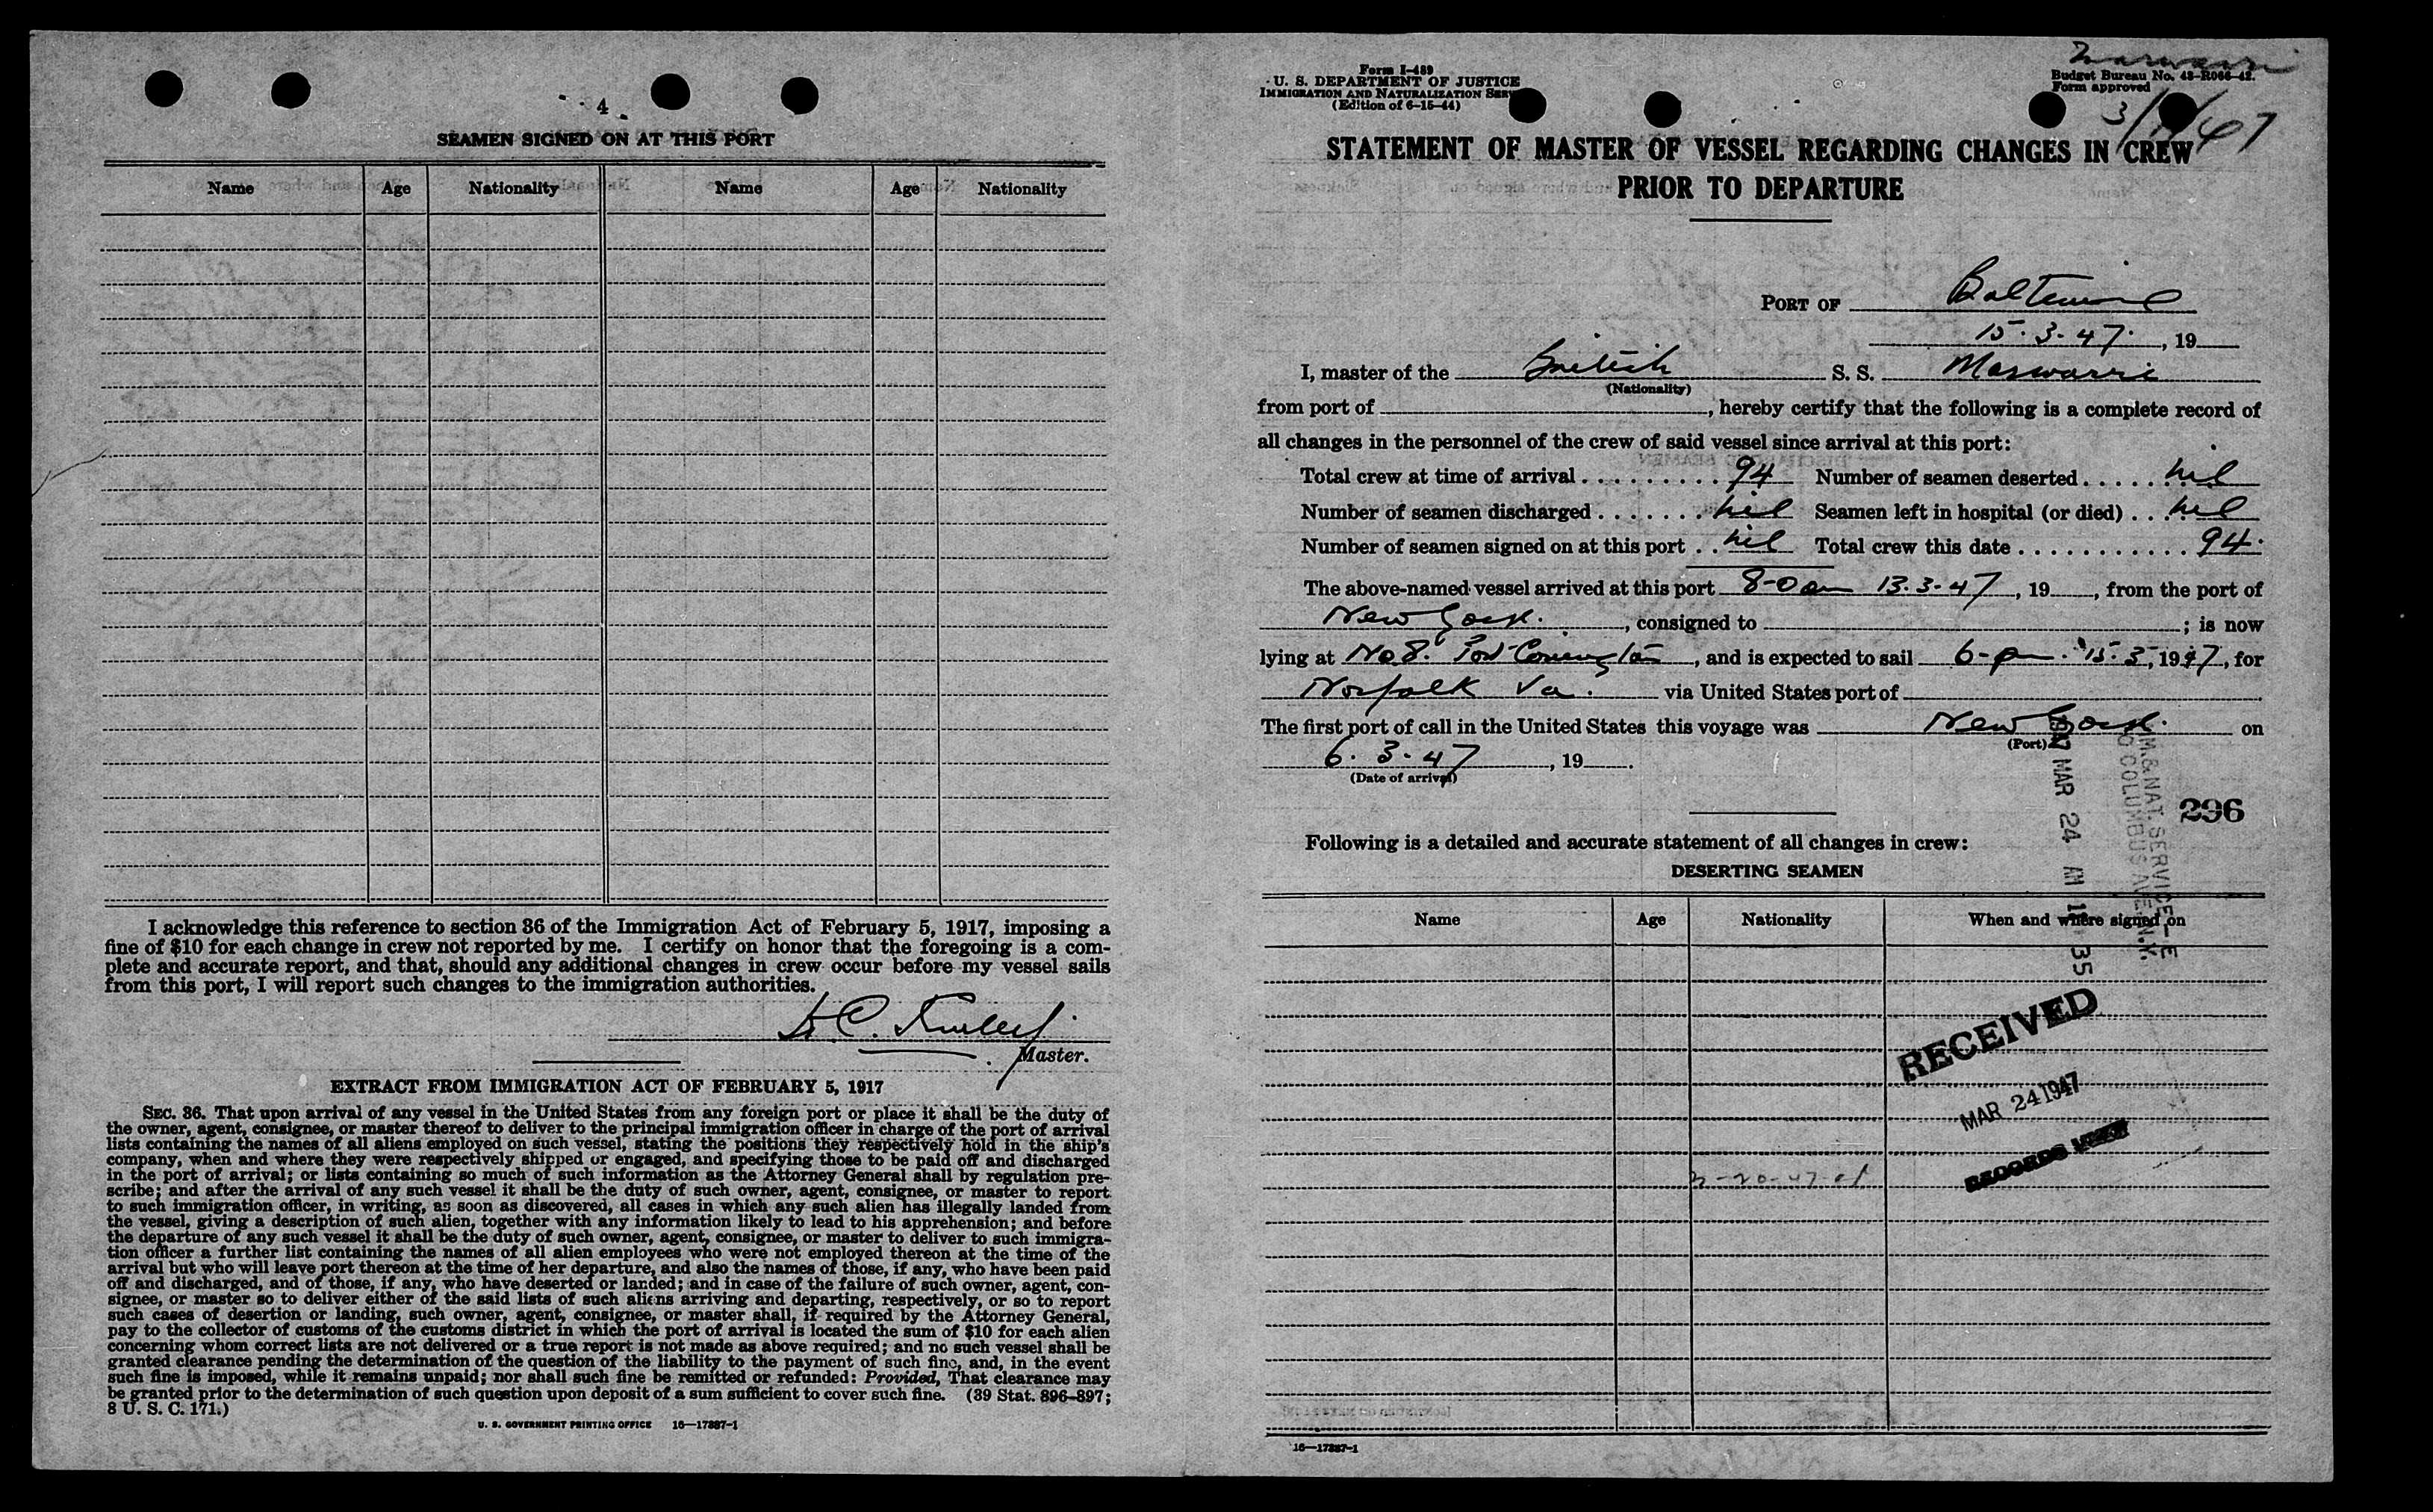 4
SEAMEN SIGNED ON AT THIS PORT
Name Age Nationality Name Age Nationality
I acknowledge this reference to section 36 of the Immigration Act of February 5, 1917, imposing a
fine of $10 for each change in crew not reported by me. I certify on honor that the foregoing is a com-
plete and accurate report, and that, should any additional changes in crew occur before my vessel sails
from this port, I will report such changes to the immigration authorities.
Master.
EXTRACT FROM IMMIGRATION ACT OF FEBRUARY 5, 1917
SEC. 36. That upon arrival of any vessel in the United States from any foreign port or place it shall be the duty of
the owner, agent, consignee, or master thereof to deliver to the principal immigration officer in charge of the port of arrival
lists containing the names of all aliens employed on such vessel, stating the positions they respectively hold in the ship's
company, when and where they were respectively shipped or engaged, and specifying those to be paid off and discharged
in the port of arrival; or lists containing so much of such information as the Attorney General shall by regulation pre-
scribe; and after the arrival of any such vessel it shall be the duty of such owner, agent, consignee, or master to report
to such immigration officer, in writing, as soon as discovered, all cases in which any such alien has illegally landed from
the vessel, giving a description of such alien, together with any information likely to lead to his apprehension; and before
the departure of any such vessel it shall be the duty of such owner, agent, consignee, or master to deliver to such immigra-
tion officer a further list containing the names of all alien employees who were not employed thereon at the time of the
arrival but who will leave port thereon at the time of her departure, and also the names of those, if any, who have been paid
off and discharged, and of those, if any, who have deserted or landed; and in case of the failure of such owner, agent, con-
signee, or master so to deliver either of the said lists of such aliens arriving and departing, respectively, or so to report
such cases of desertion or landing, such owner, agent, consignee, or master shall, if required by the Attorney General,
pay to the collector of customs of the customs district in which the port of arrival is located the sum of $10 for each alien
concerning whom correct lists are not delivered or a true report is not made as above required; and no such vessel shall be
granted clearance pending the determination of the question of the liability to the payment of such fine, and, in the event
such fine is imposed, while it remains unpaid; nor shall such fine be remitted or refunded: Provided, That clearance may
be granted prior to the determination of such question upon deposit of a sum sufficient to cover such fine. (39 Stat. 896–897;
8 U. S. C. 171.)
U. S. GOVERNMENT PRINTING OFFICE 16—17387-1
Form I-489
U. S. DEPARTMENT OF JUSTICE
IMMIGRATION AND NATURALIZATION
(Edition of 6-15-44)
Budget Bureau No. 43-R066-42.
Form approved
STATEMENT OF MASTER OF VESSEL REGARDING CHANGES IN CREW
PRIOR TO DEPARTURE
PORT OF Baltimore
15.3.47. , 19
I, master of the British S. S. Maswarri
(Nationality)
from port of , hereby certify that the following is a complete record of
all changes in the personnel of the crew of said vessel since arrival at this port:
Total crew at time of arrival . . . . . . . . . 94 Number of seamen deserted . . . . . nil
Number of seamen discharged . . . . . . . nil Seamen left in hospital (or died) . . . nil
Number of seamen signed on at this port . . nil Total crew this date . . . . . . . . . . . 94.
The above-named vessel arrived at this port 8-0 am 13.3-47 , 19 , from the port of
New York. , consigned to ; is now
lying at No 8. Port Covington , and is expected to sail 6-pm. 15.3, 1947, for
Norfolk Va. via United States port of
The first port of call in the United States this voyage was New York. on
(Port)
6.3.47 , 19 .
(Date of arrival)
1947 MAR 24 AM 35
IM. & NAT. SERVICE
COLUMBUS AVE. N.Y.
296
Following is a detailed and accurate statement of all changes in crew:
DESERTING SEAMEN
Name Age Nationality When and where signed on
RECEIVED
MAR 24 1947
RECORDS
16—17387-1